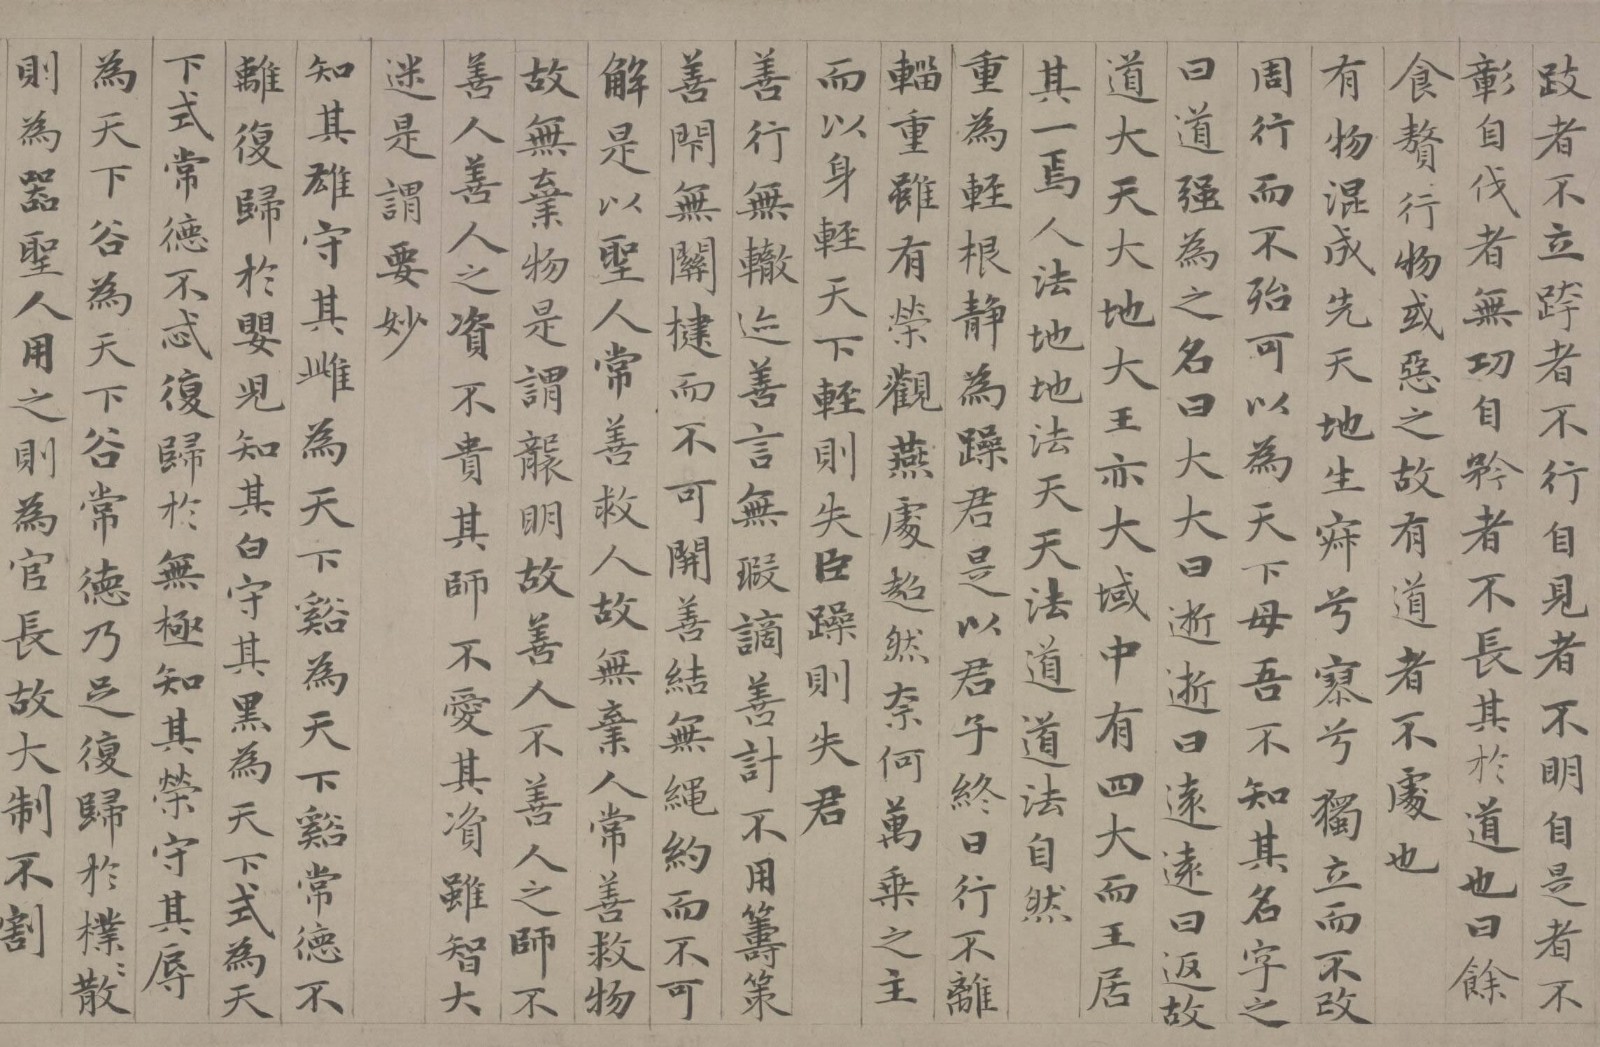 跂者不立跨者不行自見者不明自是者不
彰自伐者無功自矜者不長其於道也曰餘
食贅行物或惡之故有道者不處也
有物混成先天地生寂兮寥兮獨立而不改
周行而不殆可以為天下母吾不知其名字之
曰道強為之名曰大大曰逝逝曰遠遠曰返故
道大天大地大王亦大域中有四大而王居
其一焉人法地地法天天法道道法自然
重為輕根靜為躁君是以君子終日行不離
輜重雖有榮觀燕處超然奈何萬乘之主
而以身輕天下輕則失臣躁則失君
善行無轍迹善言無瑕謫善計不用籌策
善閇無關楗而不可開善結無繩約而不可
解是以聖人常善救人故無棄人常善救物
故無棄物是謂襲明故善人不善人之師不
善人善人之資不貴其師不愛其資雖智大
迷是謂要妙
知其雄守其雌為天下谿為天下谿常德不
離復歸於嬰兒知其白守其黑為天下式為天
下式常德不忒復歸於無極知其榮守其辱
為天下谷為天下谷常德乃足復歸於樸〻散
則為器聖人用之則為官長故大制不割